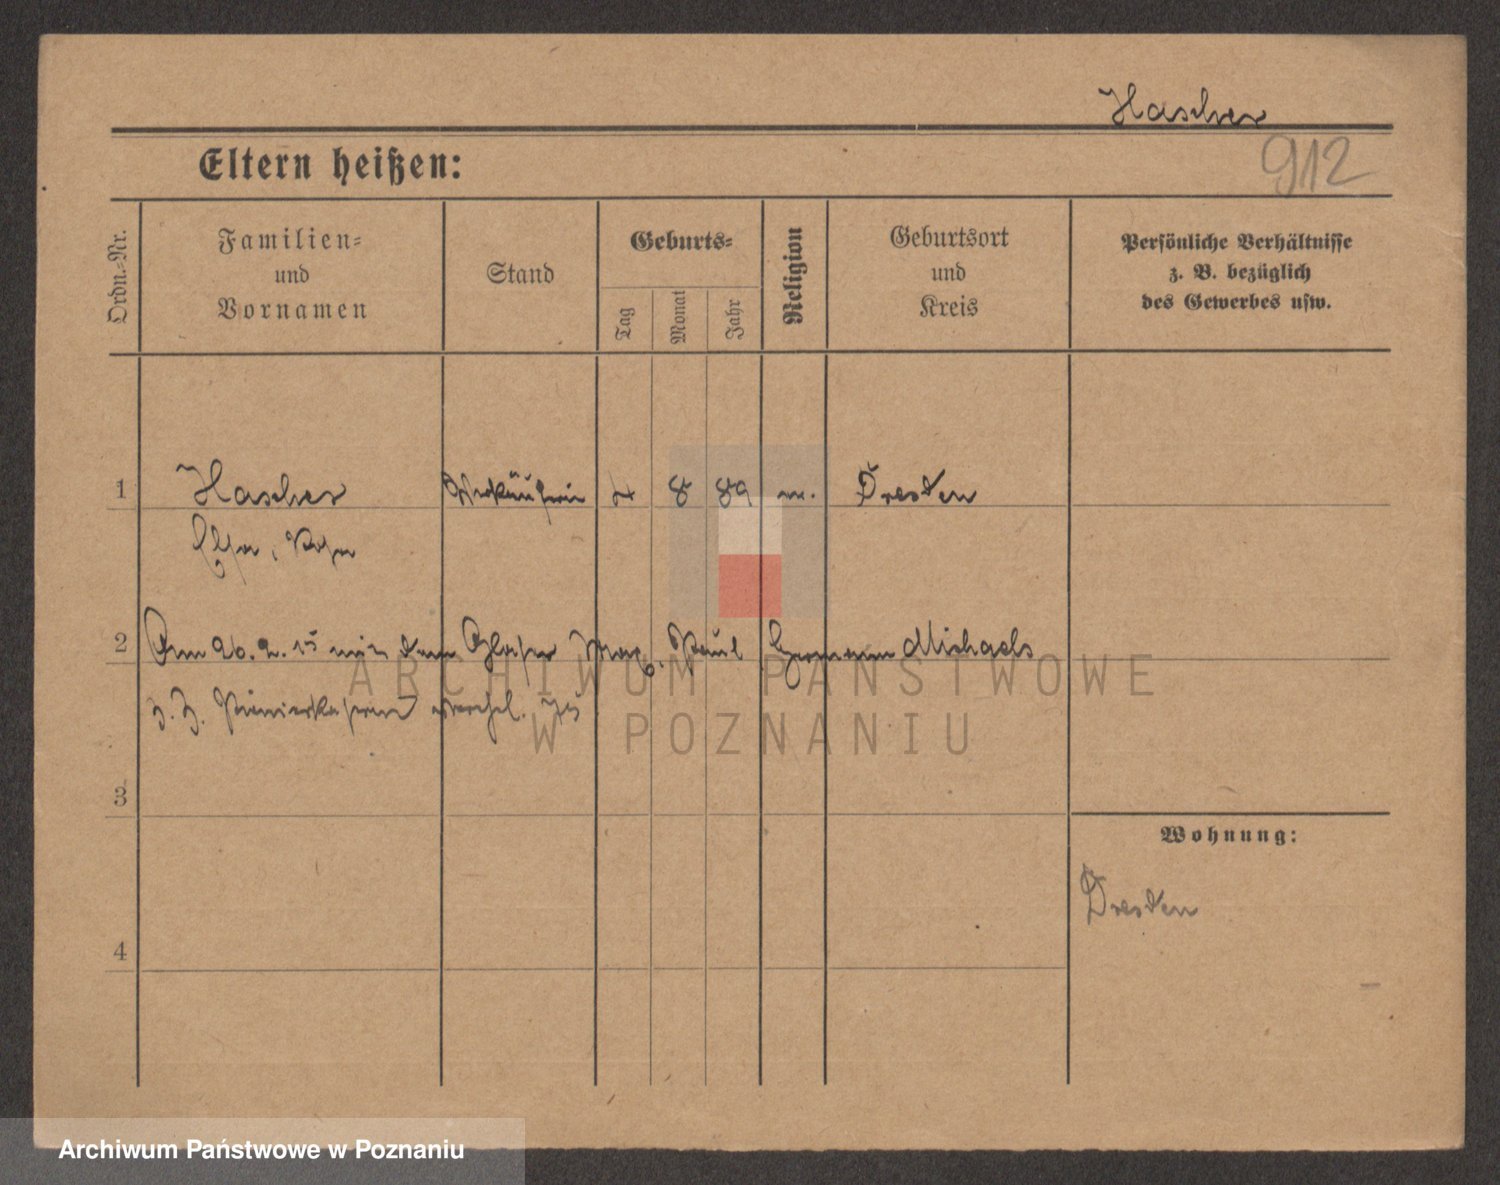 Hascher
912
Eltern heißen:
Ordn.-Nr.
Familien-
und
Vornamen
Stand
Geburts-
Tag
Monat
Jahr
Religion
Geburtsort
und
Kreis
Persönliche Verhältnisse
z. B. bezüglich
des Gewerbes usw.
1
Hascher
Verkäuferin
8
89
Dresden
Elsa, Rosa
2
Am 26. 2. 15 mit dem Glaser Paul Hermann Michaels
z. Z.
3
Wohnung:
Dresden
4
ARCHIWUM PAŃSTWOWE
W POZNANIU
Archiwum Państwowe w Poznaniu